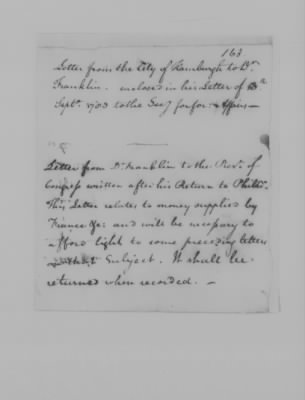 163
Letter from the City of Hamburgh to Dr.
Franklin. enclosed in his Letter of 13th
Sept. 1783 to the Secy for for: Affairs—
Letter from Dr. Franklin to the Prest. of
Congress written after his Return to Phila.
This Letter relates to money supplied by
France &c: and will be necessary to
afford light to some preceding letters
Subject. It shall be
returned when recorded. —